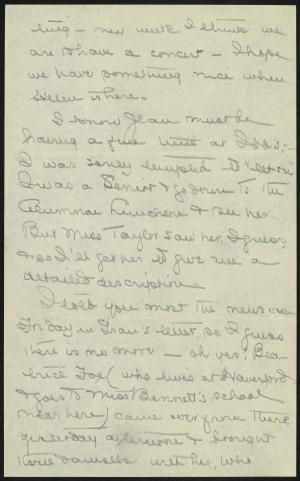 thing – next week I think we
are to have a concert – I hope
we have something nice when
Helen is here.
I know Jean must be
having a fine time at
I was sorely tempted to "let on"
I was a Senior & go down to the
Alumnae Luncheon & see her.
But Miss Taylor saw her, I guess,
& so I'll get her to give me a
detailed description.
I told you most the news on
Friday, in Fran's letter, so I guess
there is no more – oh yes! Bea-
trice Foe (who lives at Stamford
& goes to Miss Bennett's school
near here) came over from there
yesterday afternoon & brought
Danielle with her, who